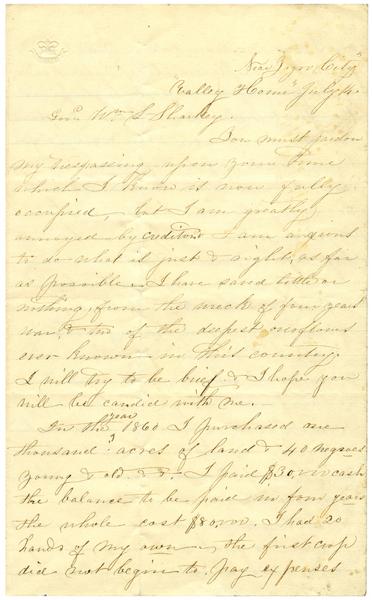 Near "Yazoo City"
"Valley Home" July 14.
Gov. Wm L Sharkey.
You must pardon
my trespassing upon your time
which I know is now fully
occupied, but I am greatly
annoyed by creditors I am anxious
to do what is just & right, as far
as possible. I have saved little or
nothing, from the wreck of four years
war, & two of the deepest overflows
ever known in this country.
I will try to be brief & I hope you
will be candid with me.
In the year 1860 I purchased one
thousand acres of land & 40 negroes
young & old. &. &. I paid $30,000 cash
the balance to be paid in four years
the whole cost $80,000. I had 20
hands of my own. the first crop
did not begin to pay expenses